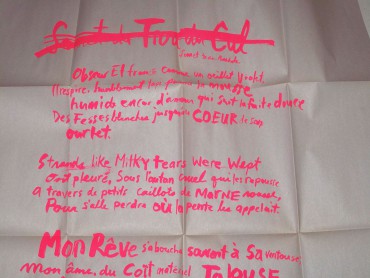 Sonnet du Trou du Cul
Obscur Et froncé comme un œillet Violet
Il respire, humblement tapi parmi la mousse
humide encor d'amour qui suit la fuite douce
Des Fesses blanches jusqu'au COEUR de son
ourlet.
Strands like Milky Tears Were Wept
Ont pleuré, Sous l'autan cruel qui les repousse
A travers de petits caillots de MARNE rousse,
Pour s'aller perdre où la pente les appelait.
MON RÊVE s'aboucha souvent à Sa ventouse
mon âme, du Coït matériel JALOUSE